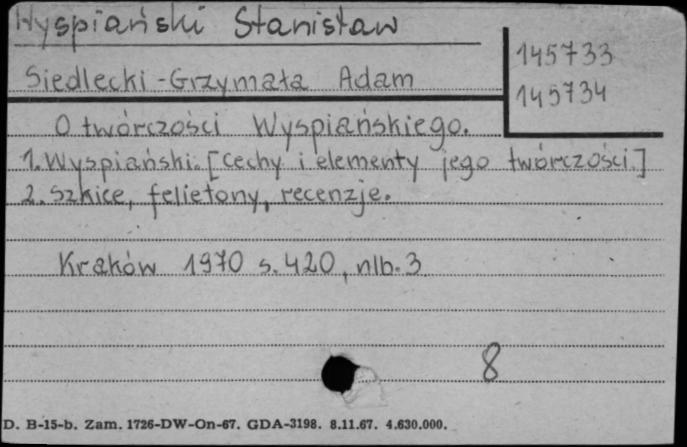 Wyspiański Stanisław
145733
Siedlecki-Grzymała Adam
145734
O twórczości Wyspiańskiego.
1. Wyspiański. [cechy i elementy jego twórczości.]
2. Szkice, felietony, recenzje.
Kraków 1970 s. 420, nlb. 3
8
D. B-15-b. Zam. 1726-DW-On-67. GDA-3198. 8.11.67. 4.630.000.